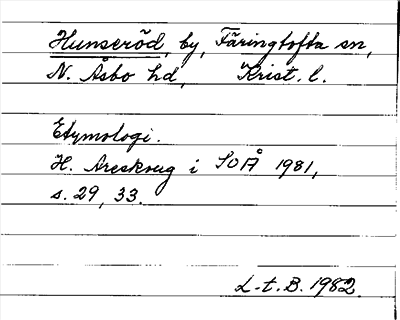 Hunseröd, by, Färingtofta sn,
N. Åsbo hd, Krist. l.
Etymologi.
H. Areskoug i SOÅ 1981,
s. 29, 33.
L-t. B. 1982.